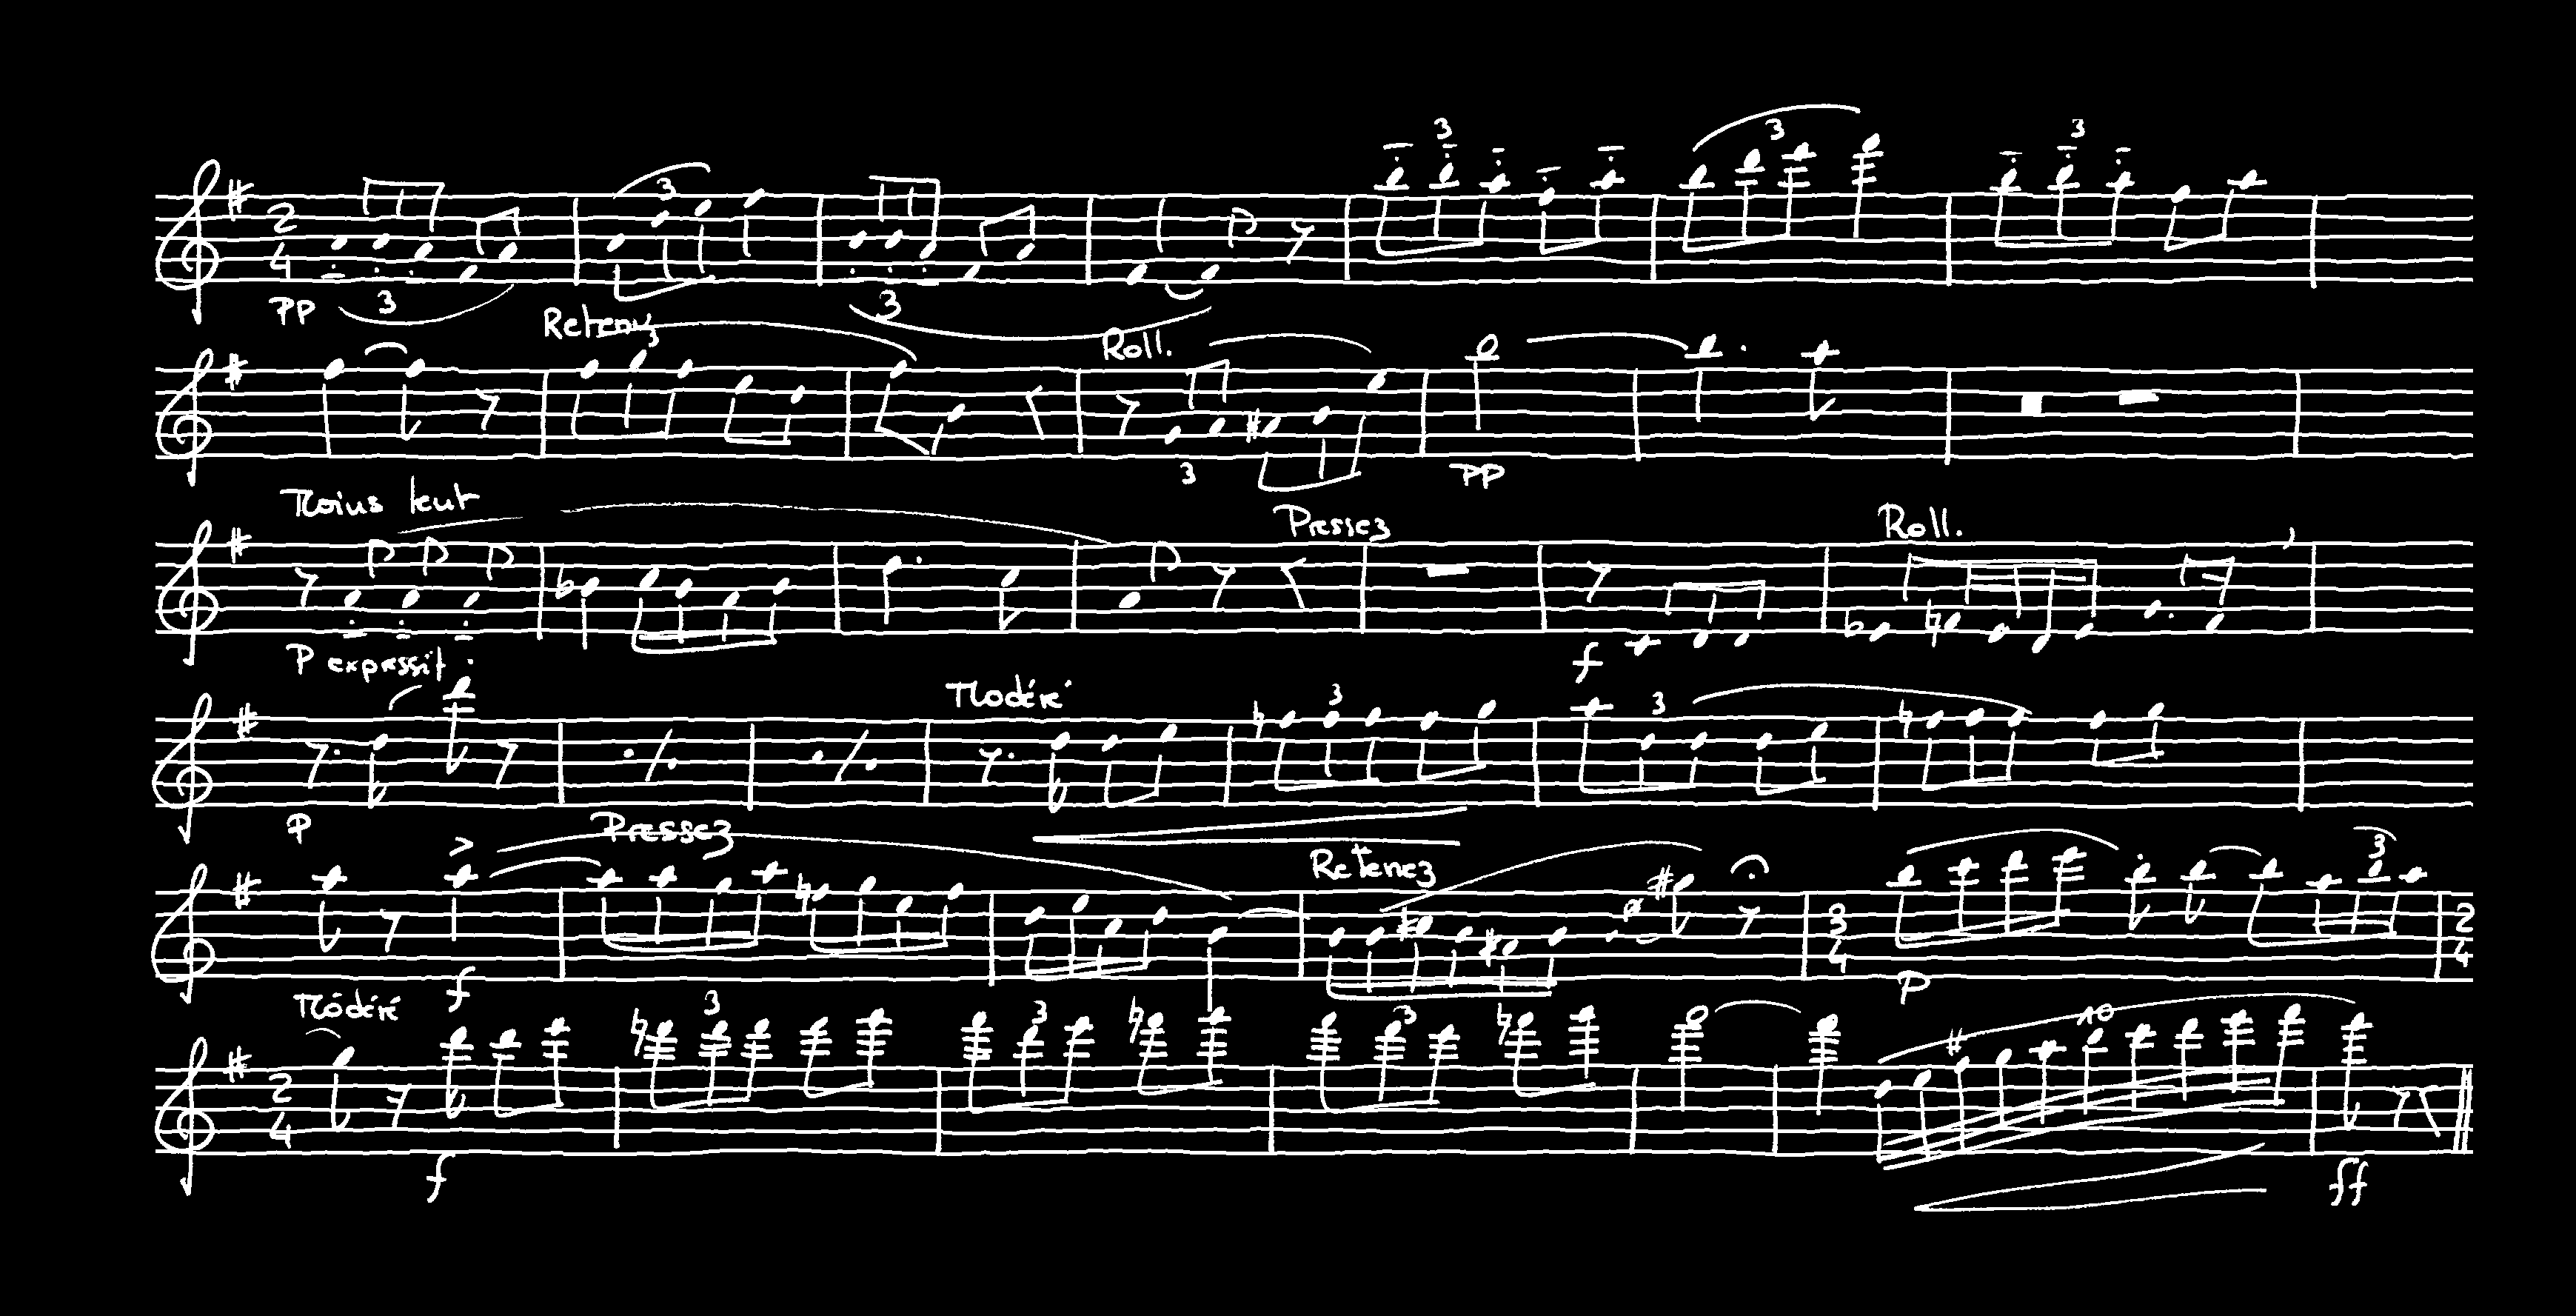 3 3 3
2 3
4
PP 3 3
Retenez Roll.
3 PP
Moins lent Pressez Roll.
P expressif f
Modéré 3 3
P Pressez
Retenez 3
3 2
4 4
f P
Modéré 3 3 3 10
2
4
f ff